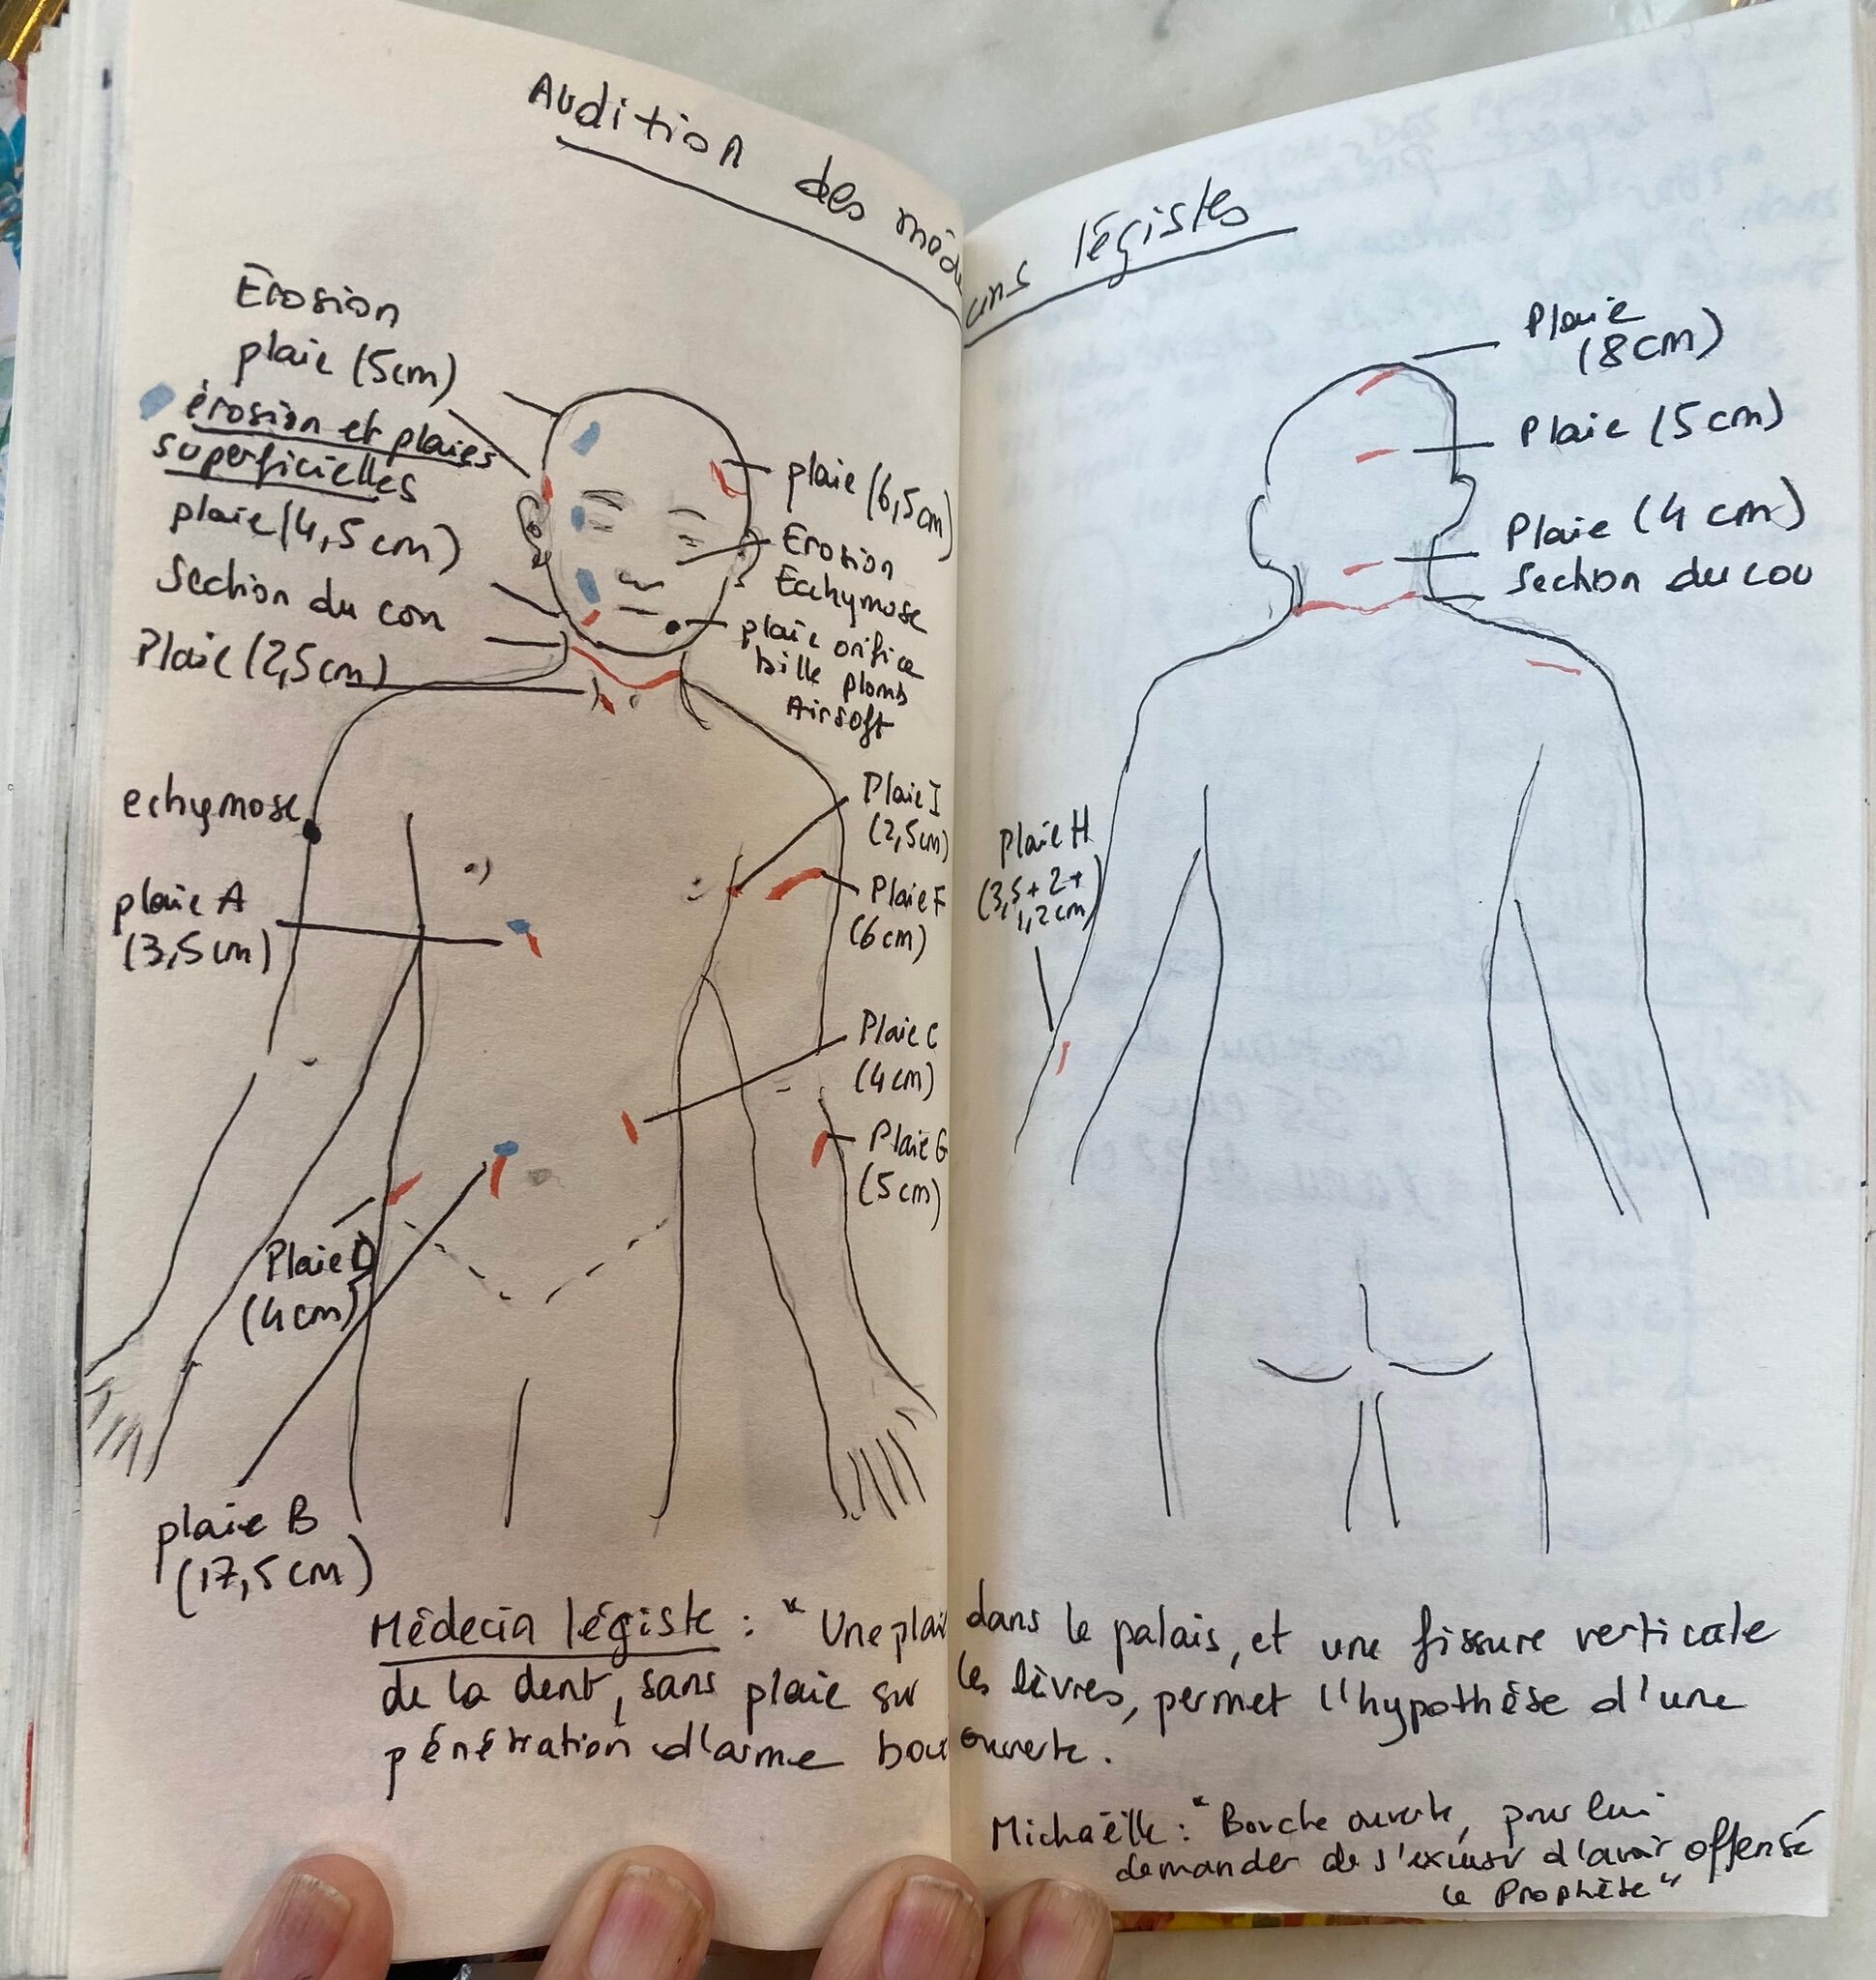 Audition des médecins légistes
Erosion
plaie (5cm)
érosion et plaies
superficielles
plaie (4,5 cm)
Section du cou
Plaie (2,5cm)
echymose
plaie A
(3,5cm)
Plaie D
(4cm)
plaie B
(17,5cm)
plaie (6,5cm)
Erosion
Ecchymose
plaie orifice
bille plomb
Airsoft
Plaie I
(2,5cm)
Plaie F
(6cm)
Plaie C
(4cm)
Plaie G
(5cm)
Plaie
(8cm)
Plaie (5cm)
Plaie (4 cm)
Section du cou
Plaie H
(3,5+2+
1,2cm)
Médecin légiste : "Une plaie dans le palais, et une fissure verticale
de la dent, sans plaie sur les lèvres, permet l'hypothèse d'une
pénétration d'arme bouche ouverte.
Michaëlle : "Bouche ouverte, pour lui
demander de s'excuser d'avoir offensé
le Prophète"